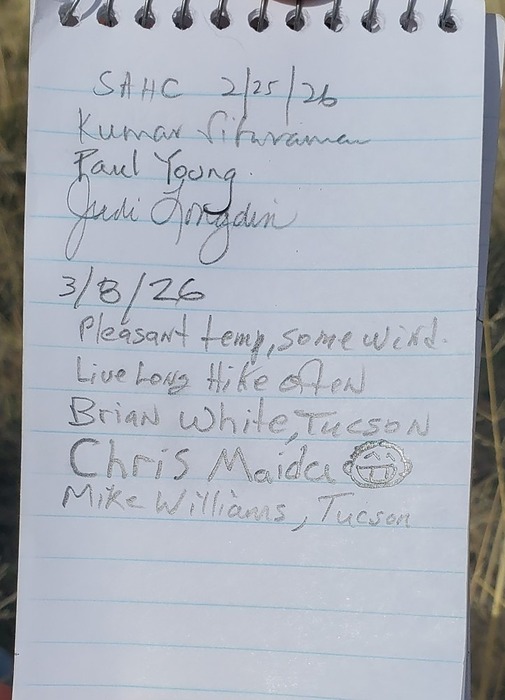 SAHC 2/25/26
Kumar Sitaraman
Paul Young
Judi Longdin
3/8/26
Pleasant temp, some wind.
Live Long Hike often
Brian White, Tucson
Chris Maida
Mike Williams, Tucson